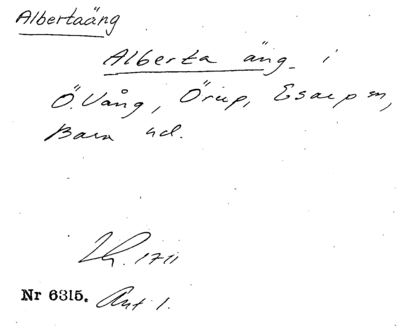 Albertaäng
Alberta äng i
Ö.Vång, Örup, Esarp sn,
Bara hd.
Lh. 1711
Nr 6315. Ant 1.